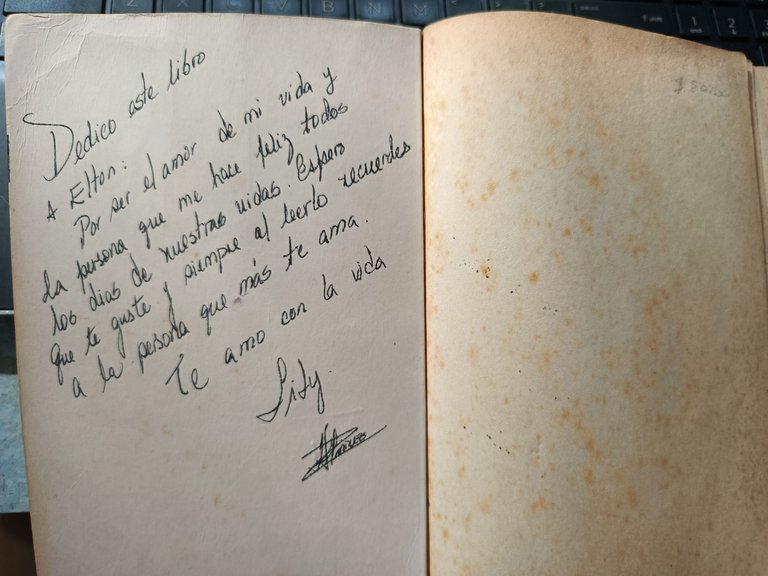 Dedico este libro
A Elton:
Por ser el amor de mi vida y
la persona que me hace feliz todos
los dias de nuestras vidas. Espero
que te guste y siempre al leerlo recuerdes
a la persona que más te ama.
Te amo con la vida